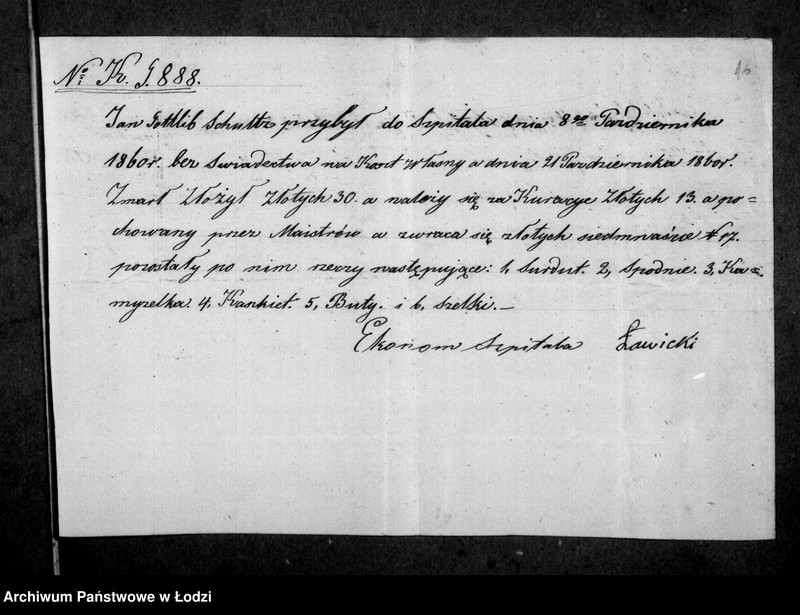 № K. G. 888.
16
Jan Gottlib Schultz przybył do Szpitala dnia 8go Pazdziernika
1860r. bez Swiadectwa na Koszt własny a dnia 21 Pazdziernika 1860r.
Zmarł Złożył Złotych 30. a należy się za Kuracye Złotych 13. a po=
chowany przez Maistrów a zwraca się złotych siedmnaście # 17.
pozostały po nim rzezy następujące: 1, Surdut. 2, Spodnie. 3, Ka=
myzelka. 4, Kaszkiet. 5, Buty. i 6, szelki.—
Ekonom Szpitala Ławicki
Archiwum Państwowe w Łodzi